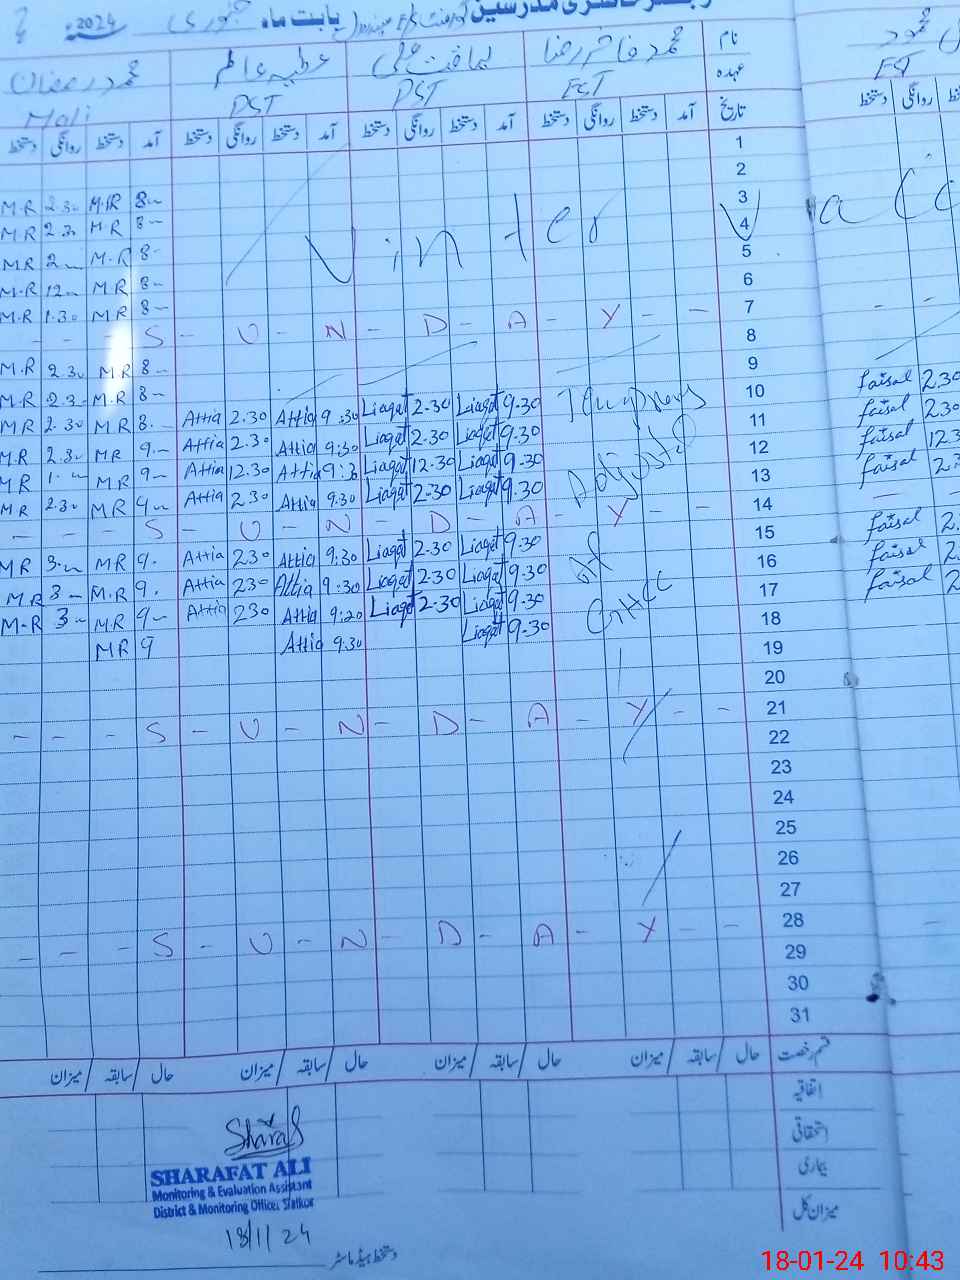 بابت ماہ جنوری 2024ء
نام محمد فاخر رضا لیاقت علی عطیہ عالم محمد رمضان
عہدہ EST PST PST Mali
EST
تاریخ آمد دستخط روانگی دستخط آمد دستخط روانگی دستخط آمد دستخط روانگی دستخط آمد دستخط روانگی دستخط
روانگی دستخط
1
2
M.R 2.30 M.R 8- 3
MR 2.30 M.R 8- 4
MR 2- M.R 8- Winter 5
M.R 12- MR 8- 6
M.R 1.30 MR 8- 7
- - - S - U - N - D - A - Y - -
8
M.R 2.30 MR 8- 9
MR 2.30 M.R 8- 10
MR 2.30 MR 8- Attia 2.30 Attia 9.30 Liaqat 2-30 Liaqat 9-30 11 faisal 2.30
MR 2.30 MR 9- Attia 2.30 Attia 9:30 Liaqat 2-30 Liaqat 9-30 12 faisal 2.30
MR 1- MR 9- Attia 12.30 Attia 9:30 Liaqat 12-30 Liaqat 9-30 13 faisal 12.3
MR 2.30 MR 9- Attia 2.30 Attia 9.30 Liaqat 2-30 Liaqat 9.30 14 faisal
- - - S - U - N - D - A - Y - -
MR 3- MR 9. Attia 2.30 Attia 9:30 Liaqat 2-30 Liaqat 9.30 15 faisal
M.R 3- M.R 9. Attia 2.30 Attia 9:30 Liaqat 2-30 Liaqat 9-30 16 faisal
M-R 3- MR 9- Attia 2.30 Attia 9:20 Liaqat 2-30 Liaqat 9-30 17 faisal
MR 9 Attia 9.30 Liaqat 9-30 18
Adjusted
at
19
20
21
- - - S - U - N - D - A - Y - -
22
23
24
25
26
27
28
- - - S - U - N - D - A - Y - -
29
30
31
قسم رخصت حال / سابقہ / میزان حال / سابقہ / میزان حال / سابقہ / میزان حال / سابقہ / میزان
اتفاقیہ
استحقاقی
بیماری
میزان کل
Sharaf
SHARAFAT ALI
Monitoring & Evaluation Assistant
District & Monitoring Officer Sialkot
18/1/24
دستخط ہیڈ ماسٹر
18-01-24 10:43